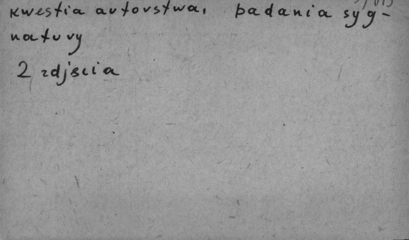 kwestia autorstwa, badania syg-
natury
2 zdjęcia